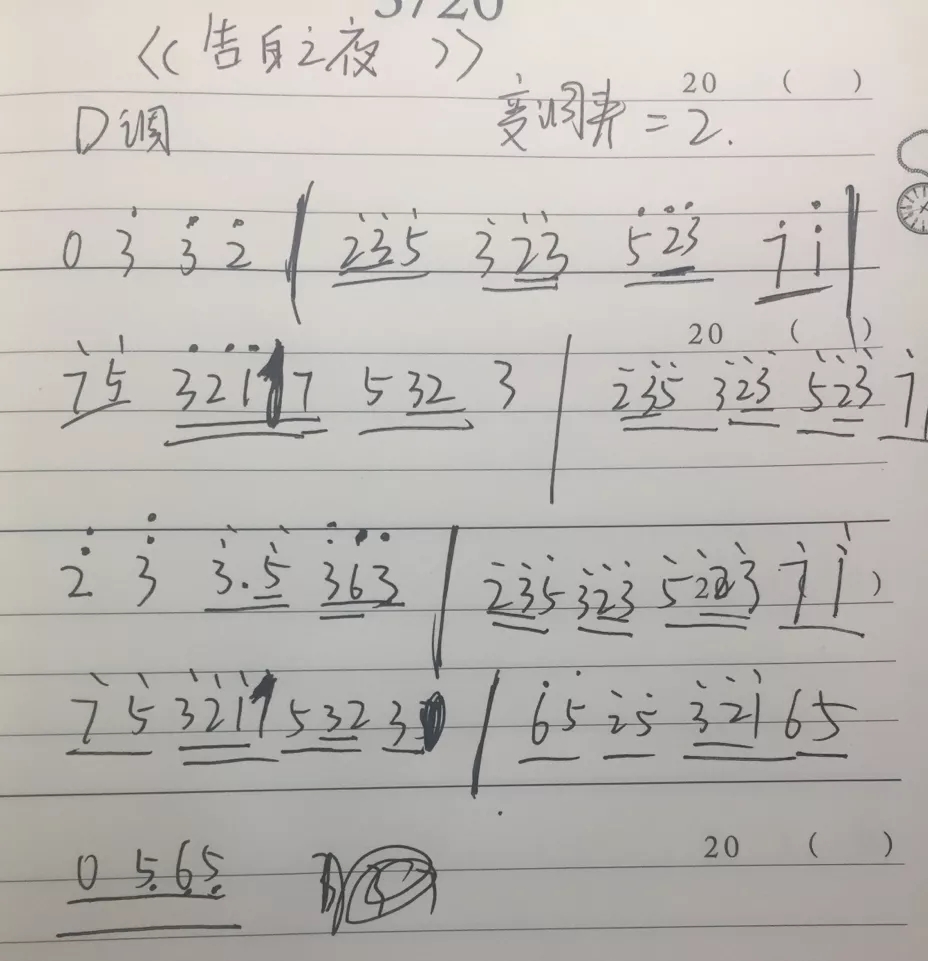 《告白之夜》
20 ( )
D调 变调夹=2.
0 3̇ 3̇ 2̇ | 2̇3̇5̇ 3̇2̇3̇ 5̇2̇3̇ 7̇ 1̇ |
20 ( )
7̇ 5̇ 3̇2̇1̇ 7 5 3 2 3 | 2̇3̇5̇ 3̇2̇3̇ 5̇2̇3̇ 7̇
2̇ 3̇ 3̇.5̇ 3̇6̇3̇ | 2̇3̇5̇ 3̇2̇3̇ 5̇2̇3̇ 7̇ 1̇
7̇ 5̇ 3̇2̇1̇ 5 3 2 3 | 6̇ 5̇ 2̇5̇ 3̇2̇1̇ 6 5
0 5̣ 6̣ 5̣
20 ( )